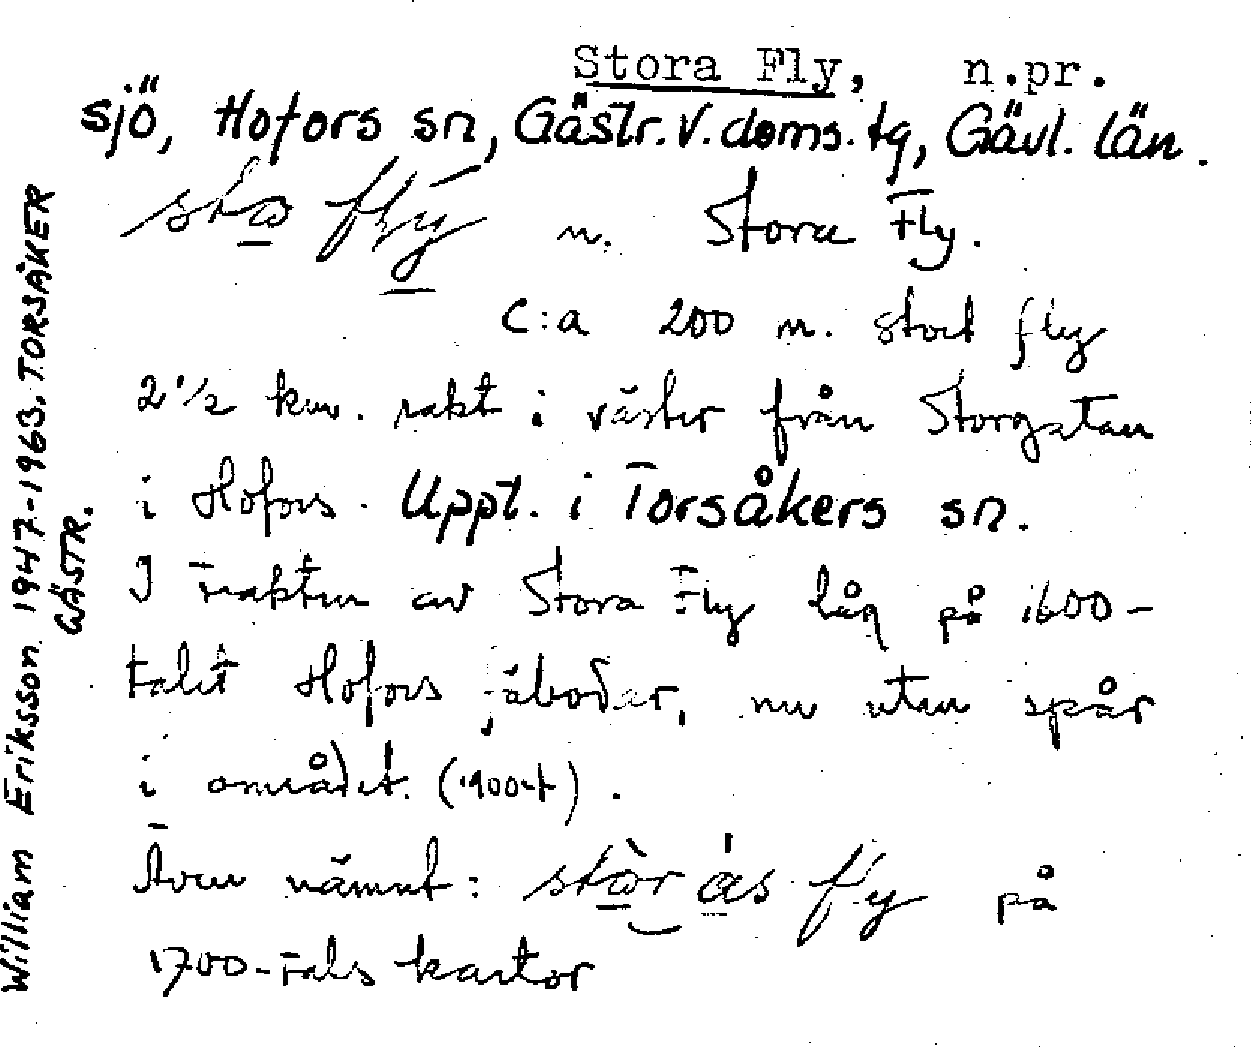 Stora Fly, n.pr.
sjö, Hofors sn, Gästr. V. doms. tg, Gävl. län.
n. Stora Fly.
C:a 200 m. stort fly
2 1/2 km. rakt i väster från Storgatan
i Hofors. Uppt. i Torsåkers sn.
I trakten av Stora Fly låg på 1600-
talet Hofors fäbodar, nu utan spår
i området. (1900-t).
Även nämnt: på
1700-tals kartor
William Eriksson 1947-1963. TORSÅKER
GÄSTR.